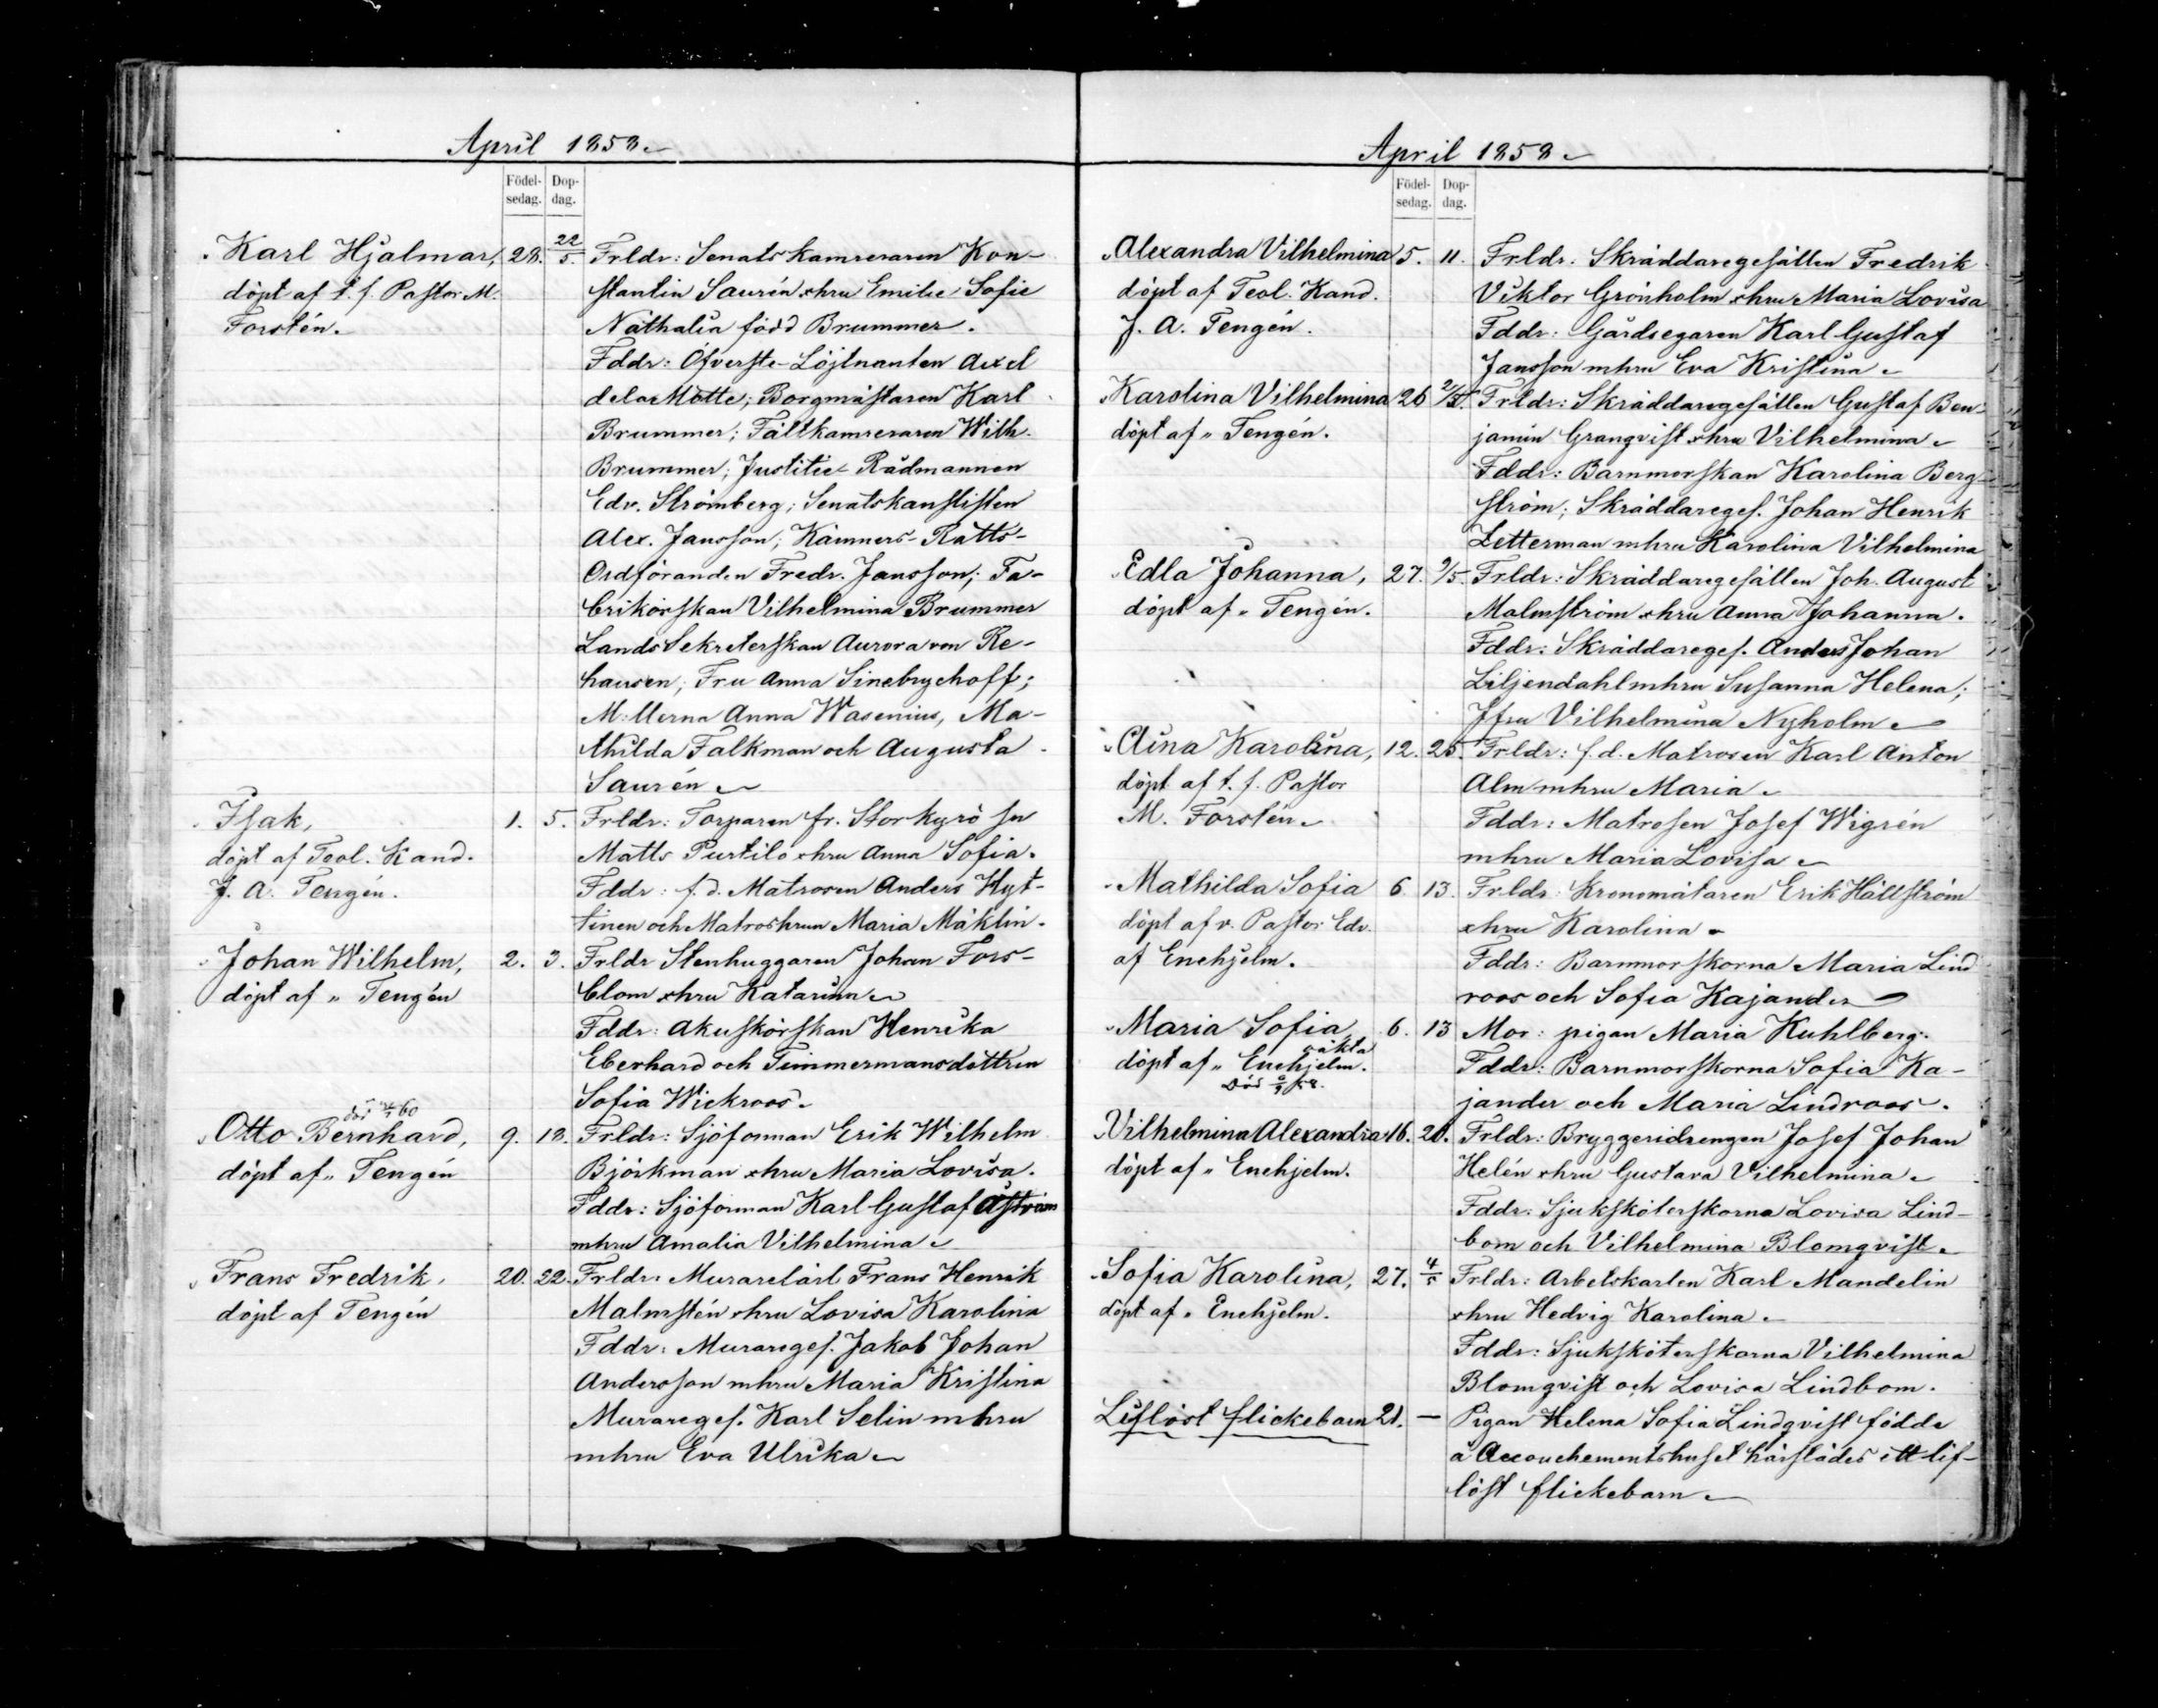 April 1858
Födel-
sedag.
Dop-
dag.
Karl Hjalmar,
döpt af t. f. Pastor M.
Forstén.
28. 22/5.
Frldr: Senats Kamreraren Kon-
stantin Saurén o hru Emilie Sofie
Nathalia född Brummer.
Fddr: Öfverste-Löjtnanten Axel
de la Motte; Borgmästaren Karl
Brummer; Fältkamreraren Wilh.
Brummer; Justitie-Rådmannen
Edv. Strömberg; Senatskanslisten
Alex. Jansson; Kämners-Rätts-
Ordföranden Fredr. Jansson; Fa-
brikörskan Vilhelmina Brummer
Lands Sekreterskan Aurora von Re-
hausen; Fru Anna Sinebrychoff;
M:llerna Anna Wasenius, Ma-
thilda Falkman och Augusta
Saurén
Isak,
döpt af Teol. Kand.
J. A. Tengén.
1. 5.
Frldr: Torparen fr. Storkyrö sn
Matts Purtilo o hru Anna Sofia.
Fddr: f. d. Matrosen Anders Hyt-
tinen och Matroshrun Maria Mäklin.
Johan Wilhelm,
döpt af " Tengén
2. 3.
Frldr Stenhuggaren Johan Fors-
blom o hru Katarina
Fddr: Akuskörskan Henrika
Eberhard och Timmermansdottren
Sofia Wickroos.
död 60
Otto Bernhard,
döpt af " Tengén
9. 18.
Frldr: Sjöforman Erik Wilhelm
Björkman o hru Maria Lovisa.
Fddr: Sjöforman Karl Gustaf Åström
mhru Amalia Vilhelmina
Frans Fredrik,
döpt af Tengén
20. 22.
Frldr: Murarelärl Frans Henrik
Malmstén o hru Lovisa Karolina
Fddr: Murareges. Jakob Johan
Andersson mhru Maria Kristina
Murareges. Karl Selin mhru
mhru Eva Ulrika
April 1858
Födel-
sedag.
Dop-
dag.
Alexandra Vilhelmina
döpt af Teol. Kand.
J. A. Tengén.
5. 11.
Frldr. Skräddaregesällen Fredrik
Viktor Grönholm o hru Maria Lovisa
Fddr: Gårdsegaren Karl Gustaf
Jansson mhru Eva Kristina
Karolina Vilhelmina
döpt af " Tengén.
26 2/5.
Frldr: Skräddaregesällen Gustaf Ben-
jamin Granqvist o hru Vilhelmina
Fddr: Barnmorskan Karolina Berg-
ström; Skräddareges. Johan Henrik
Zetterman mhru Karolina Vilhelmina
Edla Johanna,
döpt af " Tengén.
27. 9/5.
Frldr: Skräddaregesällen Joh. August
Malmström o hru Anna Johanna.
Fddr: Skräddareges. Anders Johan
Liljendahl mhru Susanna Helena;
Jfru Vilhelmina Nyholm
Aina Karolina,
döpt af t. f. Pastor
M. Forstén
12. 25.
Frldr: f. d. Matrosen Karl Anton
Alm mhru Maria
Fddr: Matrosen Josef Wigrén
mhru Maria Lovisa
Mathilda Sofia
döpt af v. Pastor Edv.
af Enehjelm.
6 13.
Frldr: Kronomätaren Erik Hällström
o hru Karolina
Fddr: Barnmorskorna Maria Lind
roos och Sofia Kajander
Maria Sofia
oäkta
döpt af " Enehjelm.
Död 58.
6. 13
Mor: pigan Maria Kuhlberg.
Fddr: Barnmorskorna Sofia Ka-
jander och Maria Lindroos.
Vilhelmina Alexandra
döpt af " Enehjelm.
16. 20.
Frldr: Bryggeridrengen Josef Johan
Helén o hru Gustava Vilhelmina
Fddr: Sjuksköterskorna Lovisa Lind-
bom och Vilhelmina Blomqvist
Sofia Karolina,
döpt af " Enehjelm.
27. 4/5
Frldr: Arbetskarlen Karl Mandelin
o hru Hedvig Karolina
Fddr: Sjuksköterskorna Vilhelmina
Blomqvist och Lovisa Lindbom.
Liflöst flickebarn
21. —
Pigan Helena Sofia Lindqvist födde
å Accouchementshuset härstädes ett lif-
löst flickebarn